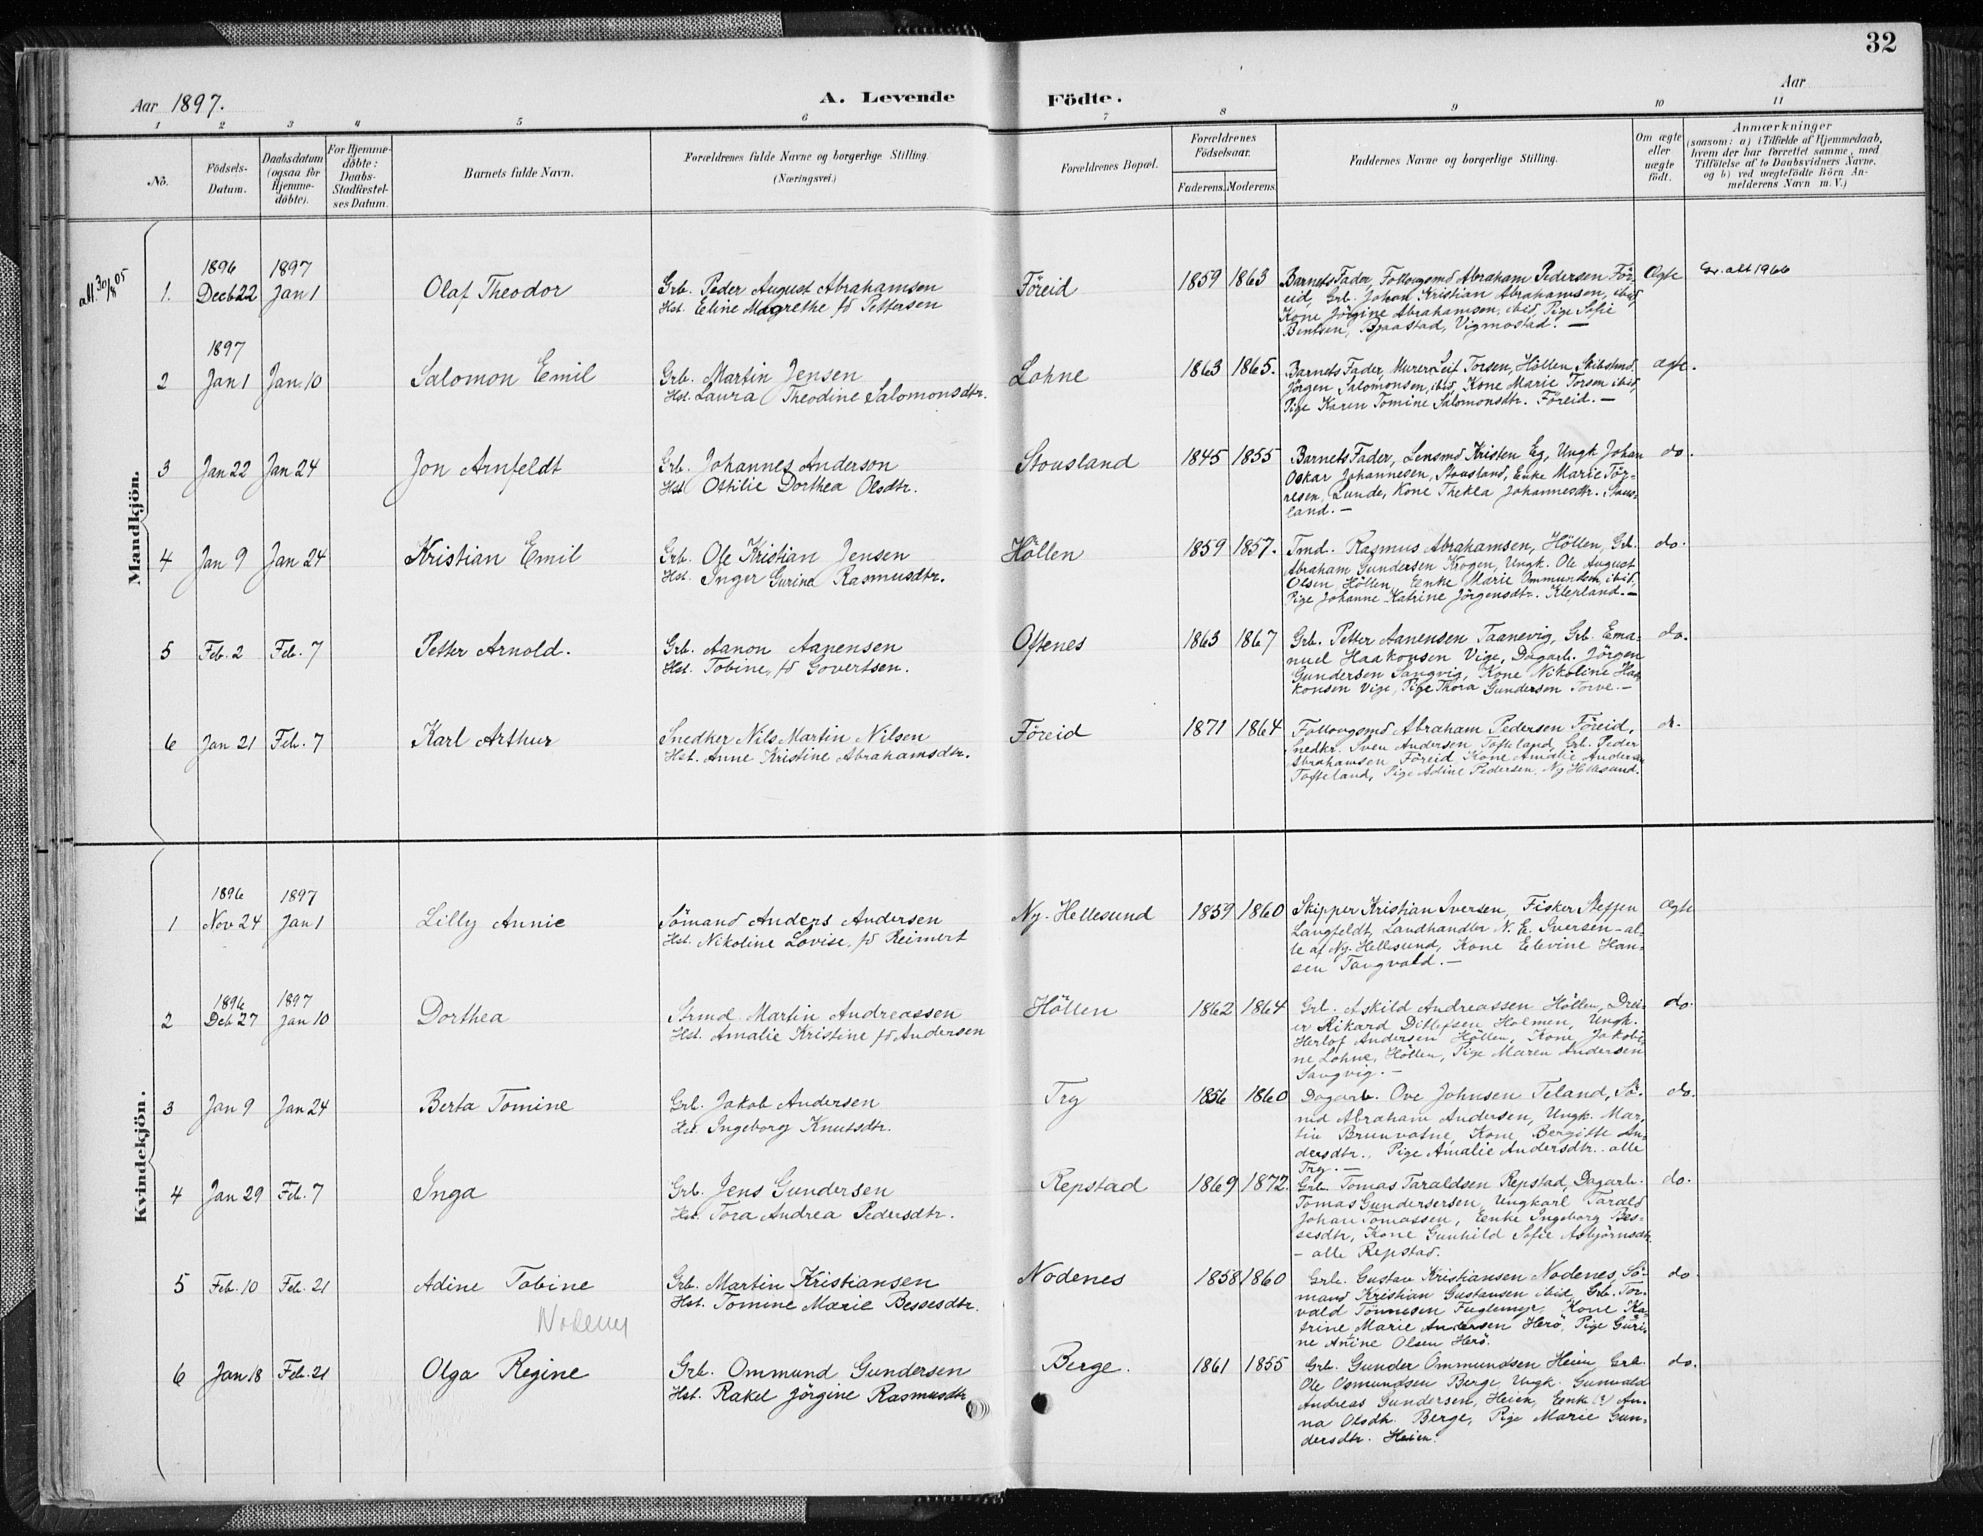 32
Aar 1897.
A. Levende Födte.
Aar
1 2 3 4 5 6 7 8 9 10 11
No.
Födsels-
Datum.
Daabsdatum
(ogsaa for
Hjemme-
døbte).
For Hjemme-
døbte:
Daabs-
Stadfæstel-
ses Datum.
Barnets fulde Navn.
Forældrenes fulde Navne og borgerlige Stilling.
(Næringsvei.)
Forældrenes Bopæl.
Forældrenes
Födselsaar.
Faderens. Moderens.
Faddernes Navne og borgerlige Stilling.
Om ægte
eller
uægte
født.
Anmærkninger
(saasom: a) i Tilfælde af Hjemmedaab,
hvem der har forrettet samme, med
Tilföielse af to Daabsvidners Navne.
og b) ved uægtefödte Börn An-
melderens Navn m. V.)
Mandkjön.
att. 30/8 05
1896 1897
1. Decb 22 Jan 1
Olaf Theodor
Grb. Peder August Abrahamsen
Hst. Eline Magrethe fd Pettersen
Föreid
1859 1863
Barnets Fader, Follougsmd Abraham Pedersen För-
eid, Grb. Johan Kristian Abrahamsen, ibid,
Kone Jörgine Abrahamsen, ibid, Pige Sofie
Bentsen, Bjaastad, Vigmostad. —
Ægte
Ev. att 1966
1897
2 Jan 1 Jan 10
Salomon Emil
Grb. Martin Jensen
Hst. Laura Theodine Salomonsdtr.
Lohne
1863 1865.
Barnets Fader, Murer Leif Torsen, Höllen Skibstmd.
Jörgen Salomonsen, ibid, Kone Marie Torsen ibid,
Pige Karen Tomine Salomonsdtr. Föreid. —
ægte.
3 Jan 22 Jan 24
Jon Arnfeldt
Grb. Johannes Anderson
Hst. Othilie Dorthea Olsdtr.
Stousland
1845 1855
Barnets Fader, Lensmd Kristen Eg, Ungk Johan
Oskar Johannesen, Stousland, Enke Marie Tör-
resen, Lunde, Kone Thekla Johannesdtr. Stous-
land. —
do.
4 Jan 9 Jan 24
Kristian Emil
Grb. Ole Kristian Jensen
Hst. Inger Gurine Rasmusdtr.
Höllen
1859 1857.
Tmd. Rasmus Abrahamsen, Höllen, Grb.
Abraham Gundersen Krogen, Ungk. Ole August
Olsen Höllen, Enke Marie Ommundsen, ibid,
Pige Johanne Katrine Jörgensdtr. Klepland. —
do.
5 Feb. 2 Feb. 7
Petter Arnold.
Grb. Aanon Aanensen
Hst. Tobine, fd Govertsen.
Oftenes
1863 1867
Grb. Petter Aanensen Taanevig, Grb. Ema-
nuel Haakonsen Vige, Dagarb. Jörgen
Gundersen Langvig, Kone Nikoline Haa-
konsen Vige, Pige Thora Gundersen Torve. —
do.
6 Jan 21 Feb. 7
Karl Arthur
Snedker Nils Martin Nilsen
Hst. Anne Kristine Abrahamsdtr.
Föreid
1871 1864
Follougsmd Abraham Pedersen Föreid,
Snedkr. Sven Andersen Tofteland, Grb. Peder
Abrahamsen Föreid, Kone Amalie Andersen
Tofteland, Pige Adine Pedersen, Ny Hellesund.
do.
Kvindekjön.
1896 1897
1 Nov 24 Jan 1
Lilly Annie
Sömand Anders Andersen
Hst. Nikoline Lovise, fd Reimert
Ny-Hellesund
1859 1860
Skipper Kristian Iversen, Fisker Steffen
Langfeldt, Landhandler N. E. Iversen - al-
le af Ny-Hellesund, Kone Elevine Han-
sen Tangvald. —
Ægte
1896 1897
2 Deb 27 Jan 10
Dorthea
Strmd. Martin Andreassen
Hst. Amalie Kristine fd Andersen
Höllen
1862 1864
Grb. Askild Andreassen Höllen, Drei-
er Rikard Ditlefsen Holmen, Ungk.
Herlof Andersen Höllen, Kone Jakobi-
ne Lohne, Höllen, Pige Maren Andersen
Langvig. —
do.
3 Jan 9 Jan 24
Berta Tomine
Grb. Jakob Andersen
Hst. Ingeborg Knutsdtr.
Try
1856 1860
Dagarb. Ove Johnsen Teland, Sö-
md Abraham Andersen, Ungk. Mar-
tin Brunvatne, Kone Bergitte An-
dersdtr., Pige Amalie Andersdtr. alle
Try. —
do.
4 Jan 29 Feb. 7
Inga
Grb. Jens Gundersen
Hst. Tora Andrea Pedersdtr.
Repstad
1869 1872.
Grb. Tomas Taraldsen Repstad, Dagarb.
Tomas Gundersersen, Ungkarl Tarald
Johan Tomassen, Enke Ingeborg Bes-
sesdtr, Kone Gunhild Sofie Asbjörnsdtr.
- alle Repstad.
do.
5 Feb. 10 Feb. 21
Adine Tobine
Nodenes
Grb. Martin Kristiansen
Hst. Tomine Marie Bessesdtr.
Nodenes
1858 1860
Grb. Gustav Kristiansen Nodenes, Sö-
mand Kristian Gustavsen ibid, Grb. Tor-
vald Tönnesen Fuglemyr, Kone Ka-
trine Marie Andersen Herö, Pige Guri-
ne Anine Olsen Herö.
do.
6 Jan 18 Feb. 21
Olga Regine
Grb. Ommund Gundersen
Hst. Rakel Jörgine Rasmusdtr
Berge.
1861 1855
Grb. Gunder Ommundsen Heien, Grb.
Ole Osmundsen Berge, Ungk. Gunvald
Andreas Gundersen, Heien, Enke (?) An-
na Olsdtr. Berge, Pige Marie Gun-
dersdtr. Heien.
do.